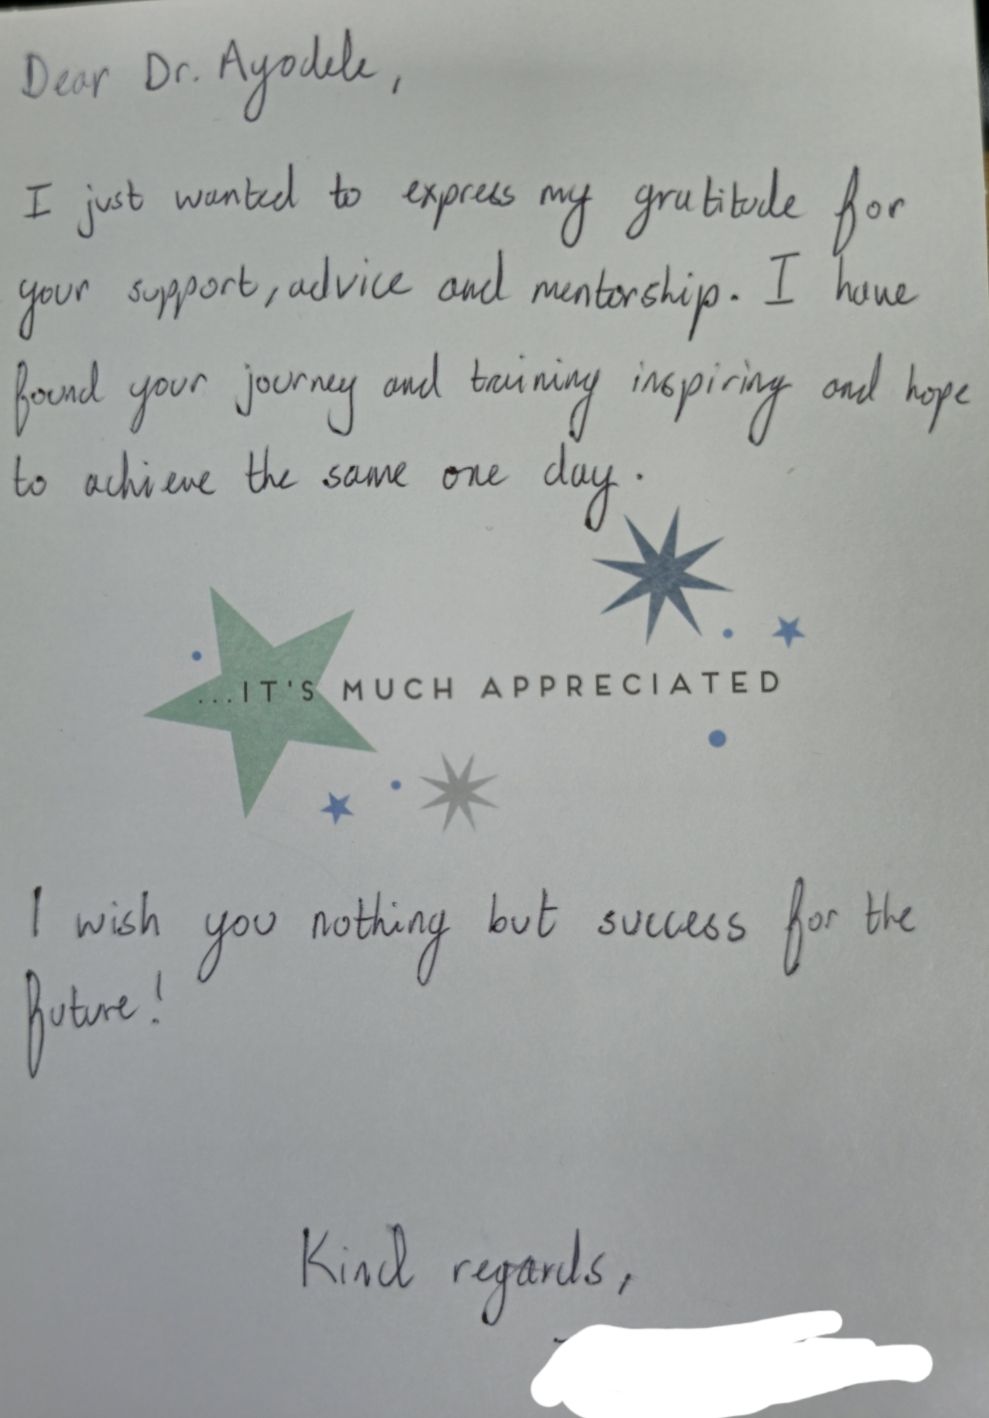 Dear Dr. Ayodele,
I just wanted to express my gratitude for
your support, advice and mentorship. I have
found your journey and training inspiring and hope
to achieve the same one day.
...IT'S MUCH APPRECIATED
I wish you nothing but success for the
future!
Kind regards,